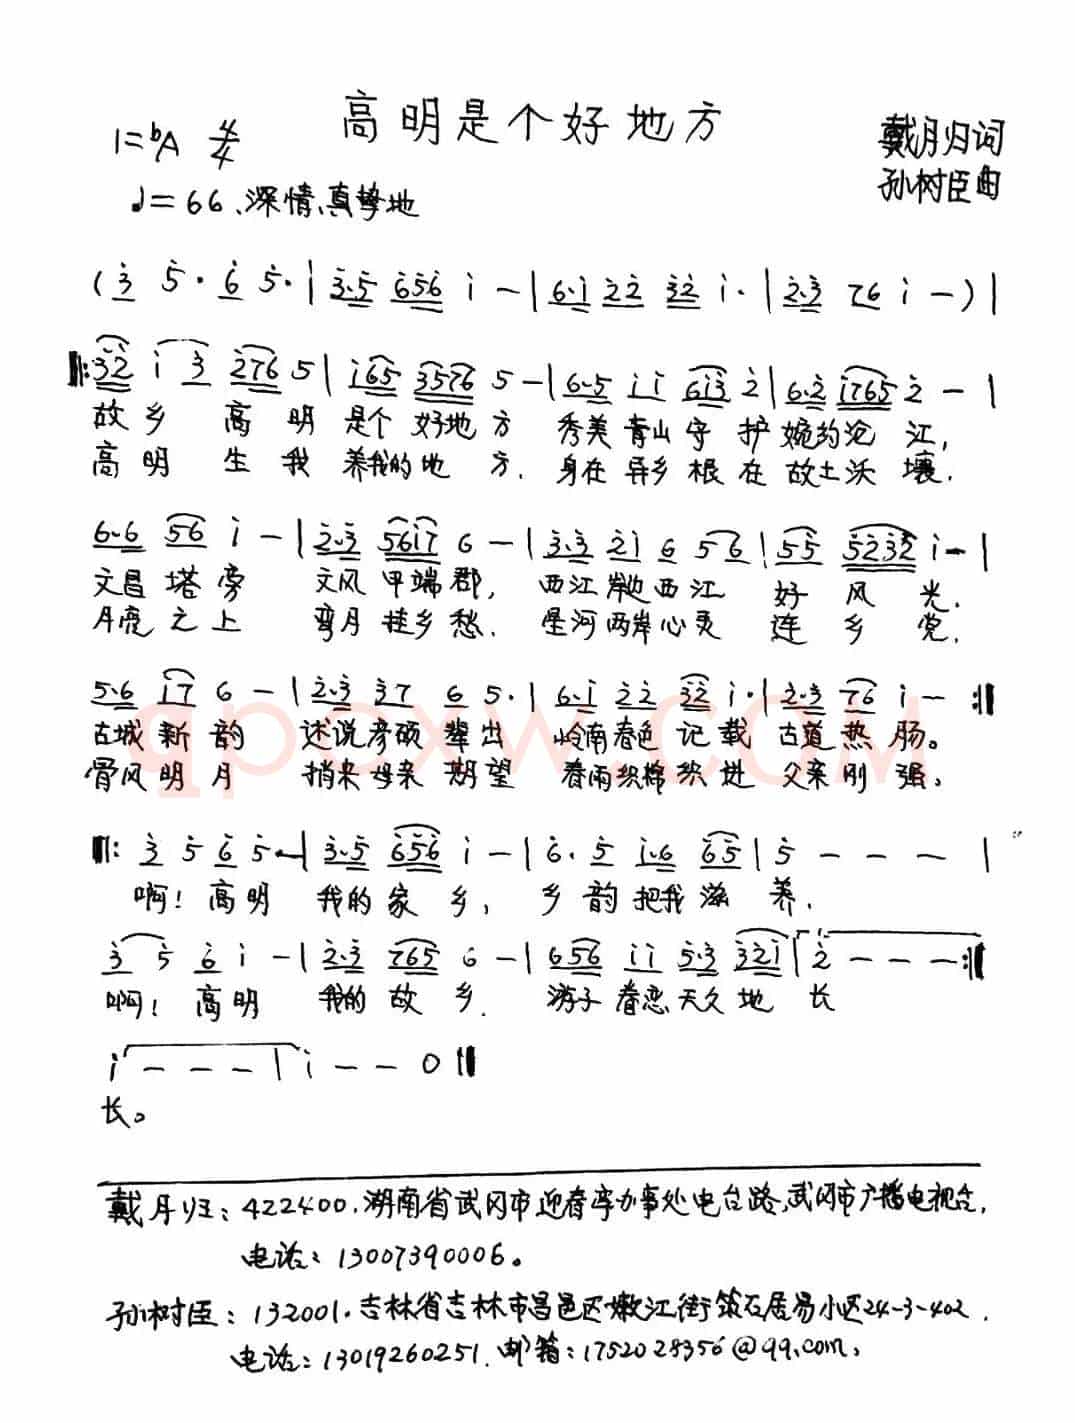 高明是个好地方
1=ᵇA 4/4
戴月归词
♩=66、深情、真挚地
孙树臣曲
(3 5· 6 5·|3·5 656 i -|6·i 22 32 i·|2·3 76 i -)|
‖:32 i 3 276 5|i65 3576 5 -|6·5 ii 6i3 2|6·2 i765 2 -|
故乡 高明 是个 好地方 秀美青山守护 婉约沧江,
高明 生我 养我的地方. 身在异乡根在故土沃壤.
6·6 56 i -|2·3 56i7 6 -|3·3 2i 6 56|55 5232 i -|
文昌塔旁 文风甲端郡, 西江岸边西江 好风光.
月亮之上 弯月挂乡愁. 星河两岸心灵 连乡党.
5·6 i7 6 -|2·3 37 6 5·|6·i 22 32 i·|2·3 76 i - :‖
古城新韵 述说彦硕辈出 岭南春色记载 古道热肠。
骨风明月 捎来母亲期望 春雨织棉织进 父亲刚强。
‖: 3 5 6 5 -|3·5 656 i -|6· 5 i·6 65|5 - - - |
啊! 高明 我的家乡, 乡韵把我滋养.
3 5 6 i -|2·3 765 6 -|656 ii 5·3 32i|2 - - - :‖
啊! 高明 我的故乡. 游子眷恋天久地长
i - - - |i - - 0 ‖
长。
戴月归: 422400.湖南省武冈市迎春亭办事处电台路,武冈市广播电视台.
电话: 13007390006。
孙树臣: 132001.吉林省吉林市昌邑区嫩江街筑石居易小区24-3-402.
电话: 13019260251. 邮箱: 1752028356@qq.com.
qpcxw.com